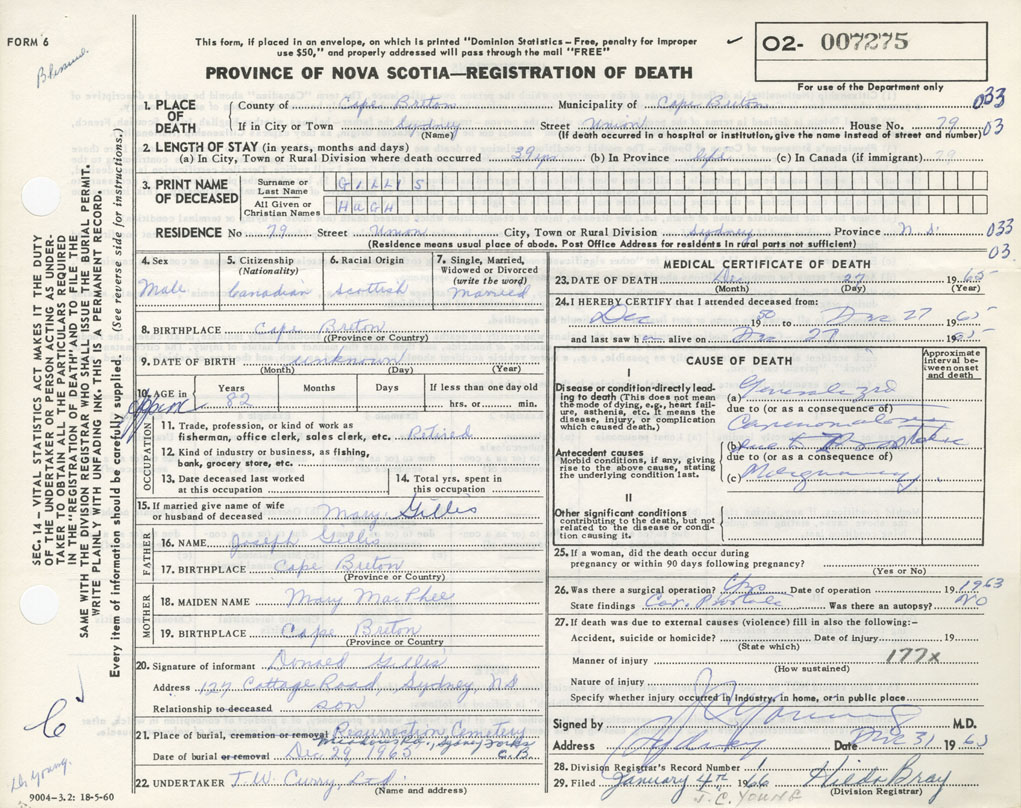 FORM 6
This form, if placed in an envelope, on which is printed "Dominion Statistics – Free, penalty for improper
use $50," and properly addressed will pass through the mail "FREE"
PROVINCE OF NOVA SCOTIA—REGISTRATION OF DEATH
02- 007275
For use of the Department only
1. PLACE OF DEATH
County of Cape Breton Municipality of Cape Breton 033
If in City or Town Sydney Street Union House No. 79 03
(Name) (If death occurred in a hospital or institution, give the name instead of street and number)
2. LENGTH OF STAY (in years, months and days)
(a) In City, Town or Rural Division where death occurred 39 yrs (b) In Province life (c) In Canada (if immigrant)
3. PRINT NAME OF DECEASED
Surname or Last Name GILLIS
All Given or Christian Names HUGH
RESIDENCE No 79 Street Union City, Town or Rural Division Sydney Province N.S. 033
(Residence means usual place of abode. Post Office Address for residents in rural parts not sufficient) 03.
4. Sex Male
5. Citizenship (Nationality) Canadian
6. Racial Origin Scottish
7. Single, Married, Widowed or Divorced (write the word) Married
8. BIRTHPLACE Cape Breton
(Province or Country)
9. DATE OF BIRTH unknown
(Month) (Day) (Year)
10. AGE in Years 82 Months Days If less than one day old
hrs. or min.
OCCUPATION
11. Trade, profession, or kind of work as
fisherman, office clerk, sales clerk, etc. Retired
12. Kind of industry or business, as fishing,
bank, grocery store, etc.
13. Date deceased last worked
at this occupation
14. Total yrs. spent in
this occupation
15. If married give name of wife
or husband of deceased Mary Gillis
FATHER
16. NAME Joseph Gillis
17. BIRTHPLACE Cape Breton
(Province or Country)
MOTHER
18. MAIDEN NAME Mary MacPhee
19. BIRTHPLACE Cape Breton
(Province or Country)
20. Signature of informant Donald Gillis
Address 127 Cottage Road, Sydney, NS
Relationship to deceased son
21. Place of burial, cremation or removal Resurrection Cemetery
Sydney Forks C.B.
Date of burial or removal Dec 29, 1965
22. UNDERTAKER T.W. Curry, Ltd.
(Name and address)
9004-3.2: 18-5-60
MEDICAL CERTIFICATE OF DEATH
23. DATE OF DEATH Dec 27 1965
(Month) (Day) (Year)
24. I HEREBY CERTIFY that I attended deceased from:
Dec 1950 to Dec 27 1965
and last saw h alive on Dec 27 1965
CAUSE OF DEATH
Approximate interval between onset and death
I
Disease or condition directly leading to death (This does not mean
the mode of dying, e.g., heart failure, asthenia, etc. It means the
disease, injury, or complication
which caused death.)
(a) Generalized
due to (or as a consequence of)
Carcinomatosis
Antecedent causes
Morbid conditions, if any, giving
rise to the above cause, stating
the underlying condition last.
(b) due to Prostatic
due to (or as a consequence of)
(c) Malignancy
II
Other significant conditions
contributing to the death, but not
related to the disease or condition causing it.
25. If a woman, did the death occur during
pregnancy or within 90 days following pregnancy?
(Yes or No)
26. Was there a surgical operation? Yes Date of operation 1963
State findings Car. Prostate Was there an autopsy? NO
27. If death was due to external causes (violence) fill in also the following:–
Accident, suicide or homicide? Date of injury 19
(State which)
Manner of injury 177x
(How sustained)
Nature of injury
Specify whether injury occurred in industry, in home, or in public place
Signed by J C Young M.D.
Address Sydney Date Dec 31 1965
28. Division Registrar's Record Number 1
29. Filed January 4th 1966 Hilda Bray
(Division Registrar)
J.C. YOUNG
SEC. 14 – VITAL STATISTICS ACT MAKES IT THE DUTY
OF THE UNDERTAKER OR PERSON ACTING AS UNDERTAKER TO OBTAIN ALL THE PARTICULARS REQUIRED
IN THE "REGISTRATION OF DEATH" AND TO FILE THE
SAME WITH THE DIVISION REGISTRAR WHO SHALL ISSUE THE BURIAL PERMIT.
WRITE PLAINLY WITH UNFADING INK. THIS IS A PERMANENT RECORD.
Every item of information should be carefully supplied. (See reverse side for instructions.)
Dr Young.